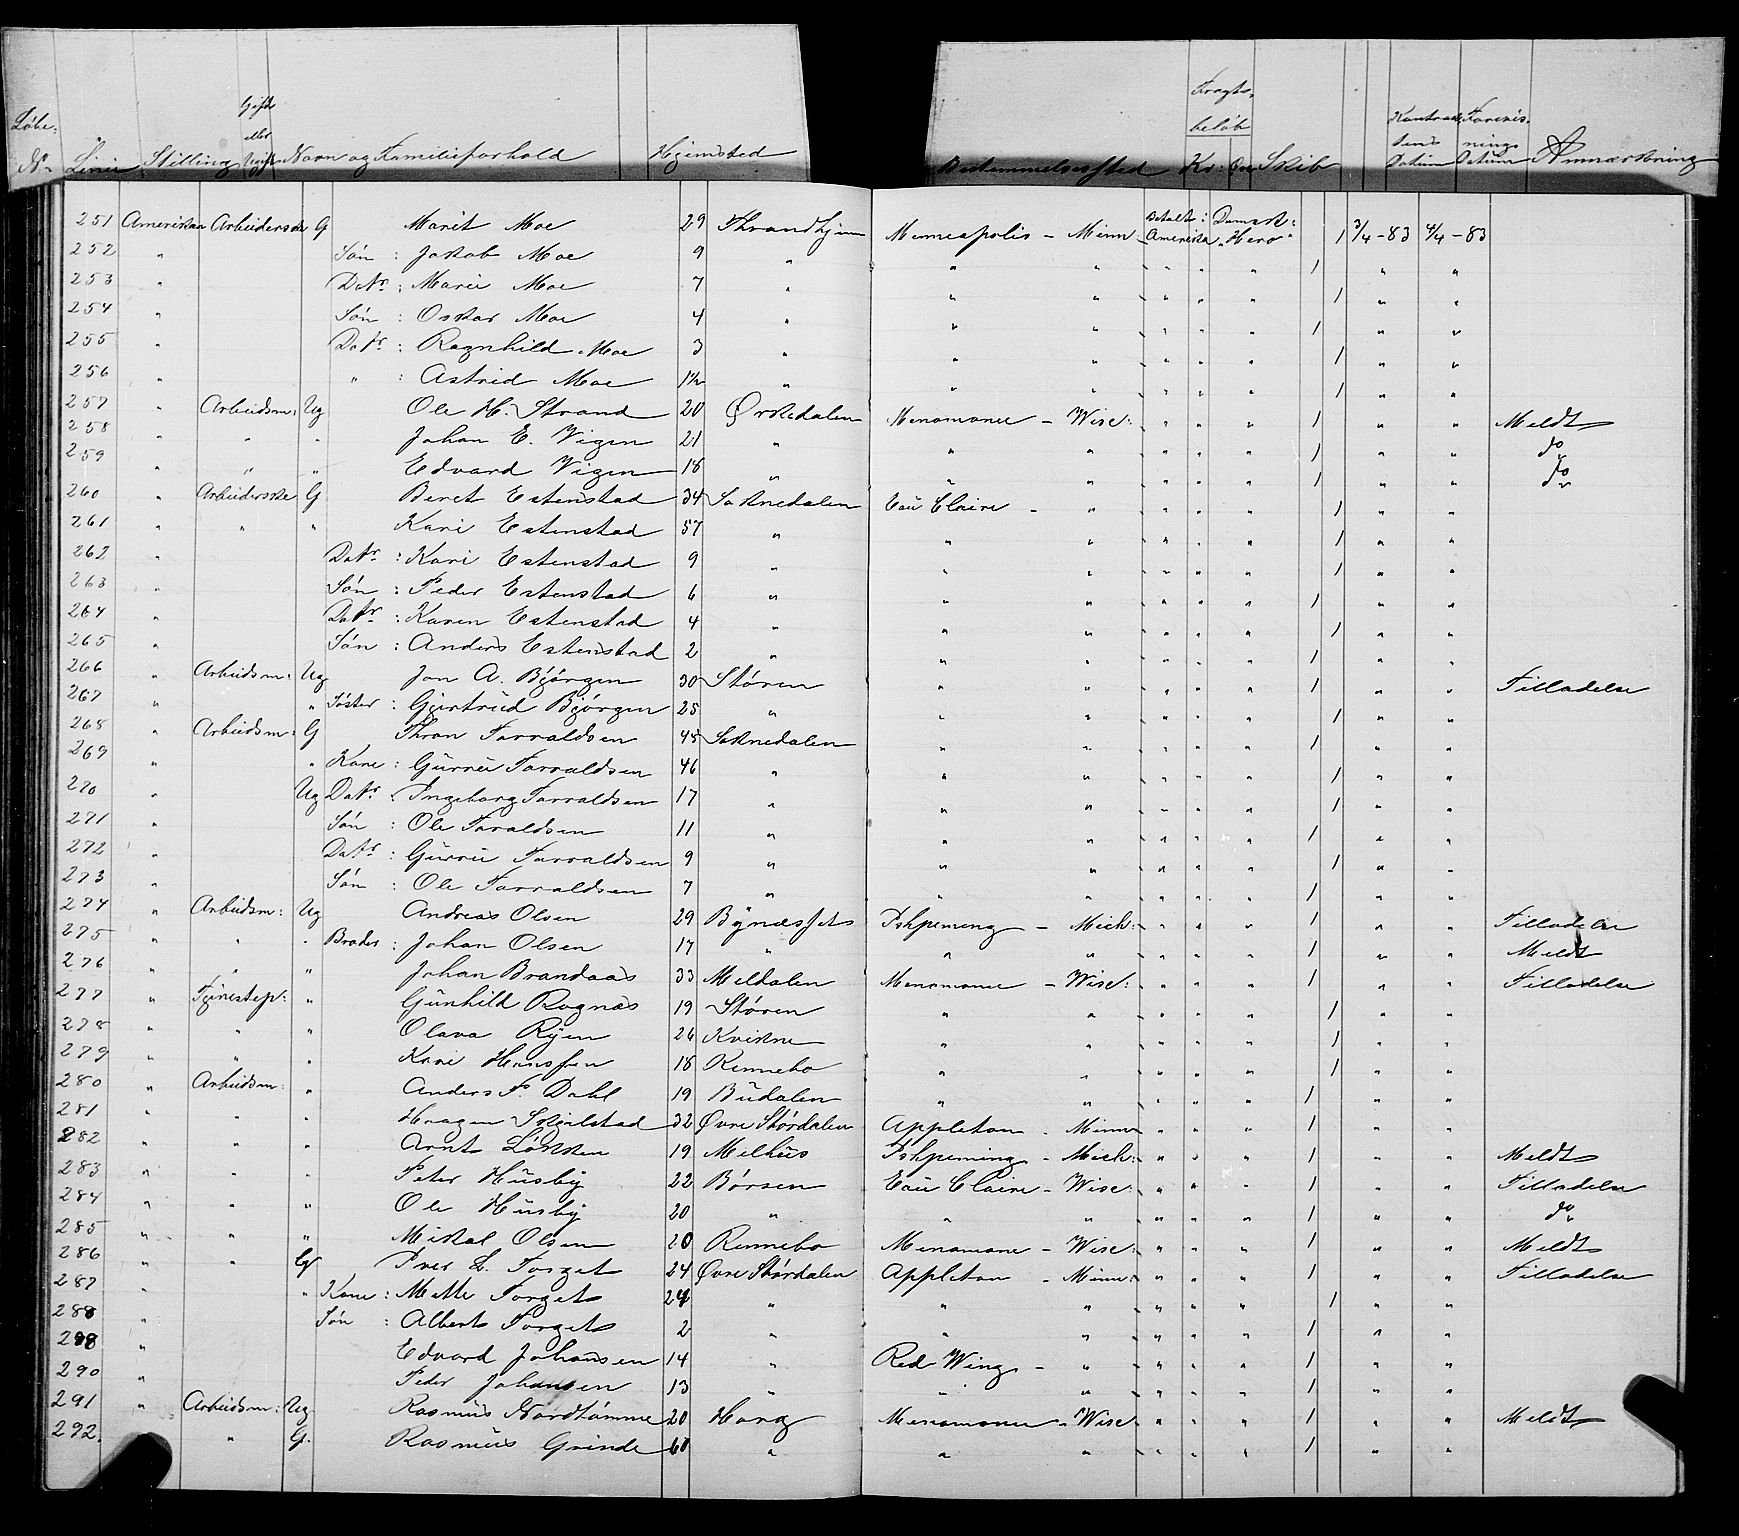 Løbe- Gift Fragts-
eller beløb Kontrak- Forevis-
tens nings
No Linie Stilling Ugift Navn og Familieforhold Hjemsted Bestemmelsessted Kr: Øre Skib Datum Datum Anmærkning
251 Amerikan Arbeiderske G Marit Moe 29 Throndhjem Minneapolis - Minn: Betalt i Amerika Dampsk: "Hero" 1 3/4-83 4/4-83
252 " Søn : Jakob Moe 9 " " " " " " 1 " "
253 " Datr : Marie Moe 7 " " " " " " 1 " "
254 " Søn : Oskar Moe 4 " " " " " " 1 " "
255 " Datr : Ragnhild Moe 3 " " " " " " 1 " "
256 " " : Astrid Moe 1½ " " " " " " 1 " "
257 " Arbeidsm: Ug Ole H. Strand 20 Ørkedalen Menomonee - Wisc: " " " 1 " " Meldt
258 " " " Johan E. Vigen 21 " " " " " " 1 " " do
259 " " " Edvard Vigen 18 " " " " " " 1 " " do
260 " Arbeiderske G Beret Estenstad 34 Soknedalen Eau Claire - " " " " 1 " "
261 " " " Kari Estenstad 57 " " " " " " 1 " "
262 " Datr : Kari Estenstad 9 " " " " " " 1 " "
263 " Søn : Peder Estenstad 6 " " " " " " 1 " "
264 " Datr : Karen Estenstad 4 " " " " " " 1 " "
265 " Søn : Anders Estenstad 2 " " " " " " 1 " "
266 " Arbeidsm: Ug Jon A. Bjørgen 30 Støren " " " " " 1 " " Tilladelse
267 " " Søster : Gjertrud Bjørgen 25 " " " " " " 1 " "
268 " Arbeidsm: G Thron Tarraldsen 45 Soknedalen " " " " " 1 " "
269 " " Kone : Gurrie Tarraldsen 46 " " " " " " 1 " "
270 " Ug Datr : Ingeborg Tarraldsen 17 " " " " " " 1 " "
271 " Søn : Ole Taraldsen 11 " " " " " " 1 " "
272 " Datr : Gurrie Tarraldsen 9 " " " " " " 1 " "
273 " Søn : Ole Tarraldsen 7 " " " " " " 1 " "
274 " Arbeidsm: Ug Andreas Olsen 29 Bynæsset Ishpeming - Mich: " " " 1 " " Tilladelse
275 " " " Broder : Johan Olsen 17 " " " " " " 1 " " Meldt
276 " " " Johan Brandaas 33 Meldalen Menomonee - Wisc: " " " 1 " " Tilladelse
277 " Tjenestep: " Gunhild Rognæs 19 Støren " " " " " 1 " "
278 " " " Olava Ryen 26 Kvikne " " " " " 1 " "
279 " " " Kari Hanssen 18 Rennebo " " " " " 1 " "
280 " Arbeidsm: " Anders F. Dahl 19 Budalen " " " " " 1 " "
281 " " " Haagen Skjelstad 32 Øvre Størdalen Appleton - Minn " " " 1 " "
282 " " " Arnt Løkken 19 Melhus Ishpeming - Mich: " " " 1 " " Meldt
283 " " " Peter Husby 22 Børsen Eau Claire - Wisc: " " " 1 " " Tilladelse
284 " " " Ole Husby 20 " " " " " " 1 " " do
285 " " " Mikal Olsen 20 Rennebo Menomonee - Wisc: " " " 1 " " Meldt
286 " " G Iver L. Forget 24 Øvre Størdalen Appleton - Minn: " " " 1 " " Tilladelse
287 " " Kone : Mette Forget 24 " " " " " " 1 " "
288 " Søn : Albert Forget 2 " " " " " " 1 " "
298 " Edvard Johansen 14 " Red Wing - " " " " 1 " "
290 " Peder Johansen 13 " " " " " " 1 " "
291 " Arbeidsm: Ug Rasmus Nordtømme 20 Horg Menomonee - Wisc: " " " 1 " " Meldt
292. " G. Rasmus Grinde 60 " " " " " " 1 " "